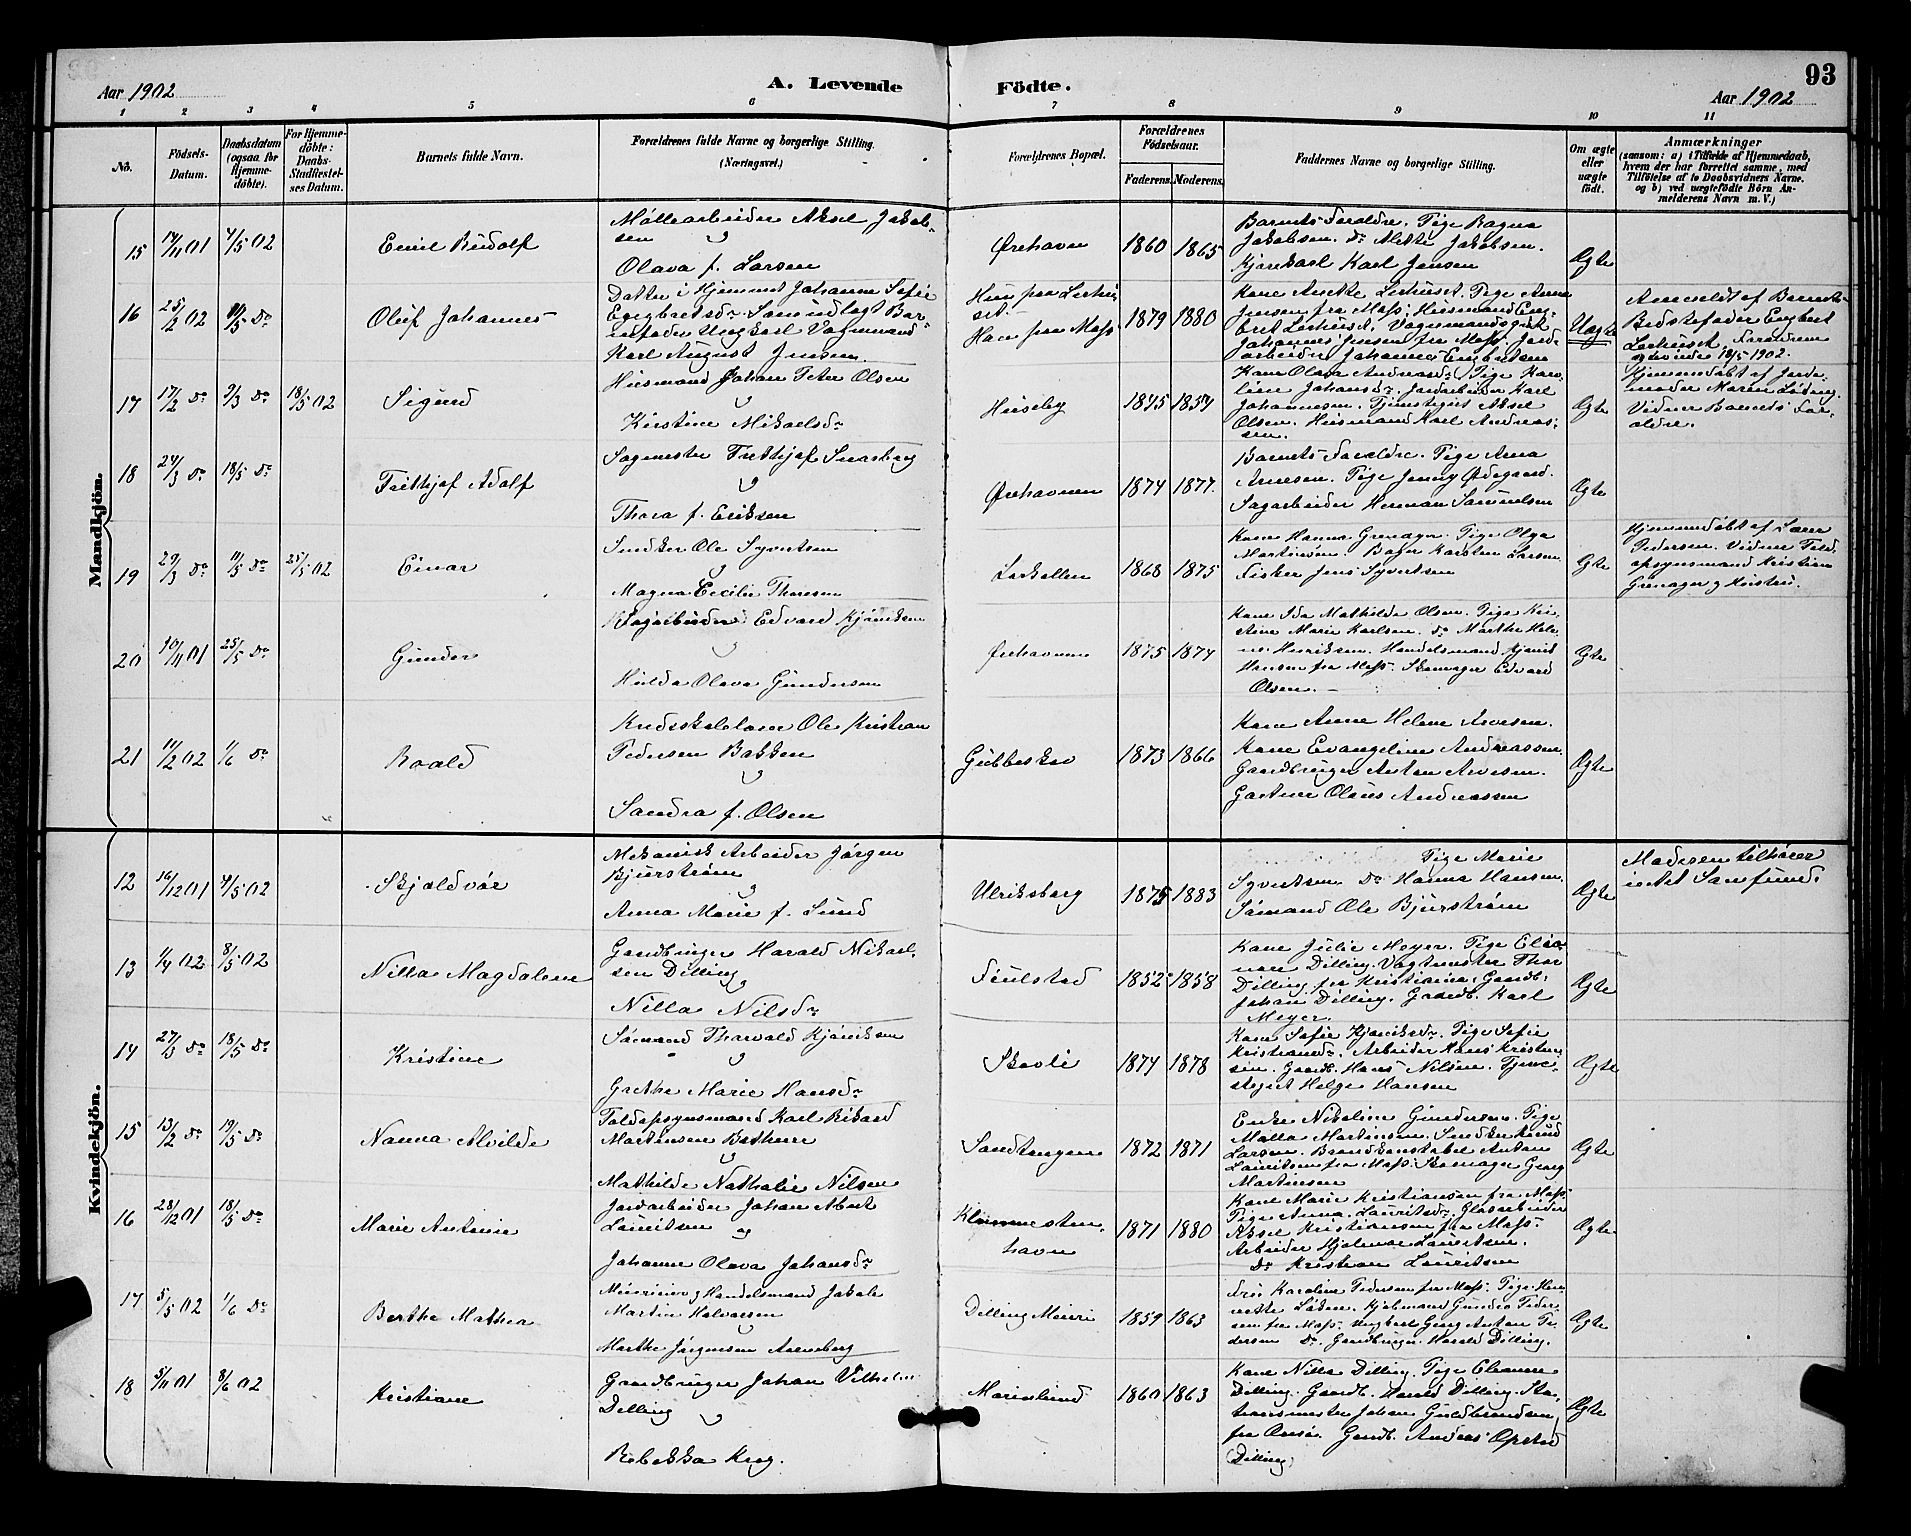 93
Aar 1902
A. Levende Födte.
Aar 1902
1 2 3 4 5 6 7 8 9 10 11
No.
Födsels-Datum.
Daabsdatum (ogsaa for Hjemmedöbte).
For Hjemmedöbte: Daabs-Stadfestelses Datum.
Barnets fulde Navn.
Forældrenes fulde Navne og borgerlige Stilling. (Næringsvei.)
Forældrenes Bopæl.
Forældrenes Födselsaar.
Faderens. Moderens.
Faddernes Navne og borgerlige Stilling.
Om ægte eller uægte födt.
Anmærkninger
(saasom: a) i Tilfælde af Hjemmedaab, hvem der har forrettet samme, med Tilföielse af to Daabsvidners Navne. og b) ved uægtefödte Börn Anmelderens Navn m. V.)
Mandkjön.
15 14/11 01 4/5 02 Emil Rudolf
Møllearbeider Aksel Jakobsen
Olava f. Larsen
Ørehavn 1860 1865
Barnets Forældre. Pige Ragna
Jakobsen. Do Mette Jakobsen.
Kjørekarl Karl Jensen
Ægte
16 25/2 02 11/5 Do Oluf Johannes
Datter i Hjemmet Johanne Sofie
Engebretsdr. Som udlagt Barnefader Ungkarl Vognmand
Karl August Jensen
Hun fra Lerhuset.
Han fra Moss. 1879 1880
Kone Anette Lerhuset. Pige Anna
Jensen fra Moss. Husmand Engbret Lerhuset. Vognmandsgut
Johannes Jensen fra Moss. Jordarbeider Johannes Engbretsen
Uægte
Anmeldt af Barnets
Bedstefader Engbret
Lerhuset. Forældrene
18/5 1902.
17 17/2 Do 2/3 Do 18/5 02 Sigurd
Husmand Johan Peter Olsen
Kirstine Mikaelsdr
Huseby 1845 1857
Kone Olava Andreasdr. Pige Karoline Johansdr. Jordarbeider Karl
Johannesen. Tjenstegut Aksel
Olsen. Husmand Karl Andreassen.
Ægte
Hjemmedøbt af Jordemoder Maren Løken.
Vidner Barnets Forældre.
18 24/3 Do 18/5 Do Frithjof Adolf
Sagmester Frithjof Snarberg
Thora f. Eriksen
Ørehavnen 1874 1877.
Barnets Forældre. Pige Anna
Arnesen. Pige Jenny Ødegaard.
Sagarbeider Herman Samuelsen
Ægte
19 29/3 Do 11/5 Do 25/5 02 Einar
Snedker Ole Syvertsen
Magna Cecilie Thoresen
Larkollen 1868 1875
Kone Hanna Grenager. Pige Olga
Martinsen. Bager Karsten Larsen.
Fisker Jens Syvertsen
Ægte
Hjemmedøbt af Lærer
Pedersen. Vidner Toldopsynsmand Kristian
Grenager og Hustru.
20 10/11 01 25/5 Do Gunder
Sagarbeider Edvard Kjøniksen
Hulda Olava Gundersen
Ørehavnen 1875 1874
Kone Ida Mathilde Olsen. Pige Kristine Marie Karlsen. Do Marthe Helene Henriksen. Handelsmand
Hansen fra Moss. Skomager Edvard
Olsen.
Ægte
21 11/2 02 1/6 Do Roald
Ole Kristian
Pedersen Bakken
Sandra f. Olsen
Gubbeskov 1873 1866
Kone Anne Helene Arvesen.
Kone Evangeline Andreassen.
Gaardbruger Anton Arvesen.
Gartner Olaus Andreassen
Ægte
Kvindekjön.
12 16/12 01 4/5 02 Skjoldvør
Mekanisk Arbeider Jørgen
Bjurstrøm
Anna Marie f. Lund
Ulriksborg 1875 1883
Pige Marie
Syvertsen Do Hanna Hansen.
Sømand Ole Bjurstrøm
Ægte
Moderen tilhører
intet Samfund.
13 1/4 02 8/5 02 Nilla Magdalene
Gaardbruger Harald Mikaelsen Dilling
Nilla Nilsdr
Fiulstad 1852 1858
Kone Julie Meyer. Pige Elianore Dilling. Vagtmester Thor
Dilling fra Kristiania. Gaardb.
Johan Dilling. Gaardb. Karl
Meyer.
Ægte
14 27/3 Do 18/5 Do Kristine
Sømand Thorvald Kjøniksen
Grethe Marie Hansdr
Skovli 1874 1878
Kone Sofie Kjøniksdr. Pige Sofie
Kristiansdr. Arbeider Hans Kristensen. Gaardb. Hans Nilsen. Tjenestegut Helge Hansen
Ægte
15 13/2 Do 19/5 Do Nanna Alvilde
Toldopsynsmand Karl Rikard
Martinsen
Mathilde Nathalie Nilsen
Sandtangen 1872 1871
Enke Nikoline Gundersen. Pige
Molla Martinsen. Snedker Knud
Larsen. Brandkonstabel Anton
Lauritsen fra Moss. Skomager Georg
Martinsen
Ægte
16 28/12 01 18/5 Do Marie Antonie
Jordarbeider Johan Albert
Lauritsen og
Johanne Olava Johansdr
Klommestenhavn 1871 1880
Kone Marie Kristiansen fra Moss.
Pige Anna Lauritsdr. Glasarbeider
Aksel Kristiansen fra Moss.
Arbeider Hjalmar Lauritsen.
Do Kristian Lauritsen
Ægte
17 5/5 02 1/6 Do Berthe Mathea
Meierier og Handelsmand Jakob
Martin Halvorsen
Marthe Jørgensen Areneberg
Dilling Meieri 1859 1863
Fru Karoline Pedersen fra Moss. Pige Henriette Løken. Kjøbmand Gunder Pedersen fra Moss. Ungkarl Georg Anton Pedersen Do. Gaardbruger Harald Dilling.
Ægte
18 5/11 01 8/6 02 Kristiane
Gaardbruger Johan Vilhelm
Dilling
Rebekka Krog.
Marielund 1860 1863
Kone Nilla Dilling. Pige Eleanore
Dilling. Gaardb. Harald Dilling. Stationsmester Johan Guldbrandsen
fra Onsø. Gaardb. Anders Opstad
(Dilling)
Ægte